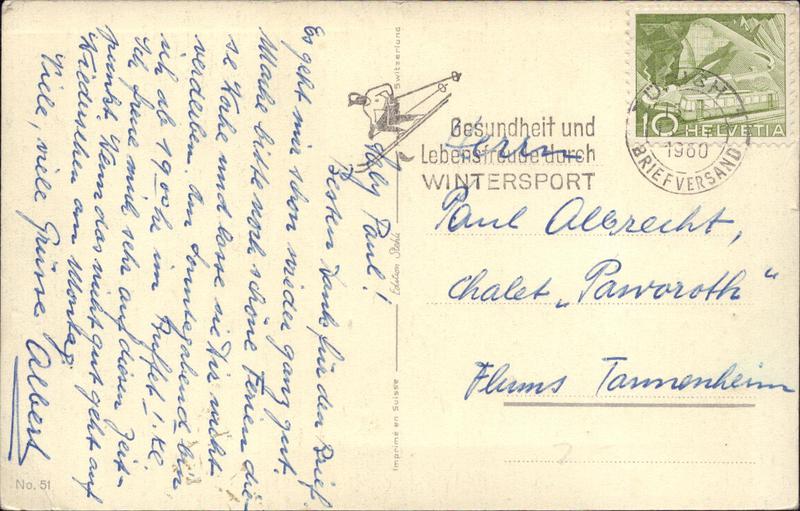 Saly Paul!
Besten Dank für den Brief.
Es geht mir schon wieder ganz gut.
Mache bitte noch schöne Ferien die-
se Woche und lasse sie Dir nicht
verderben. Am Sonntagabend bin
ich ab 19.00 h im Buffet 1. Kl.
Ich freue mich sehr auf diesen Zeit-
punkt. Wenn das nicht gut geht auf
Wiedersehen am Montag.
Viele, viele Grüsse Albert
No. 51
Imprimé en Suisse
Edition Stehli
Switzerland
Gesundheit und
Lebensfreude durch
WINTERSPORT
10 HELVETIA
1960
BRIEFVERSAND
Herrn
Paul Albrecht,
Chalet „Paworoth"
Flums Tannenheim